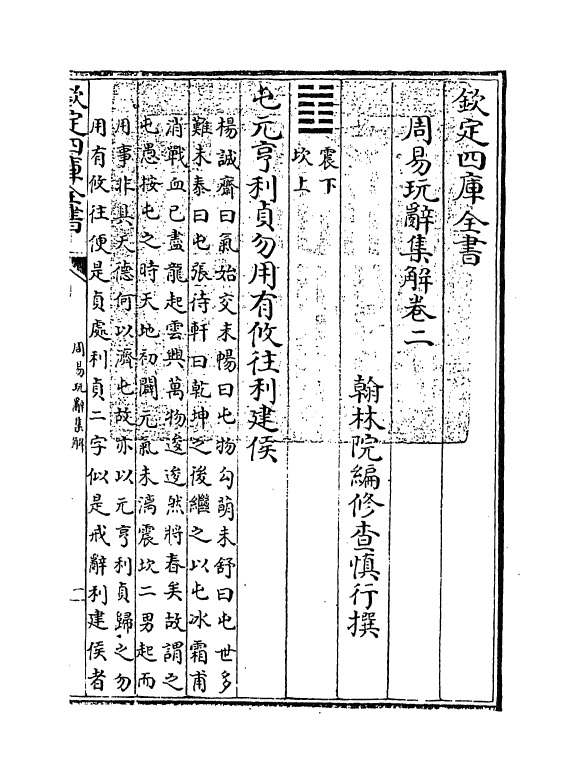 欽定四庫全書
周易玩辭集解卷二
翰林院編修查慎行撰
震下
坎上
屯元亨利貞勿用有攸往利建侯
楊誠齋曰氣始交未暢曰屯物勾萌未舒曰屯世多
難未泰曰屯張待軒曰乾坤之後繼之以屯冰霜甫
消戰血已盡龍起雲興萬物逡逡然將春矣故謂之
屯愚按屯之時天地初闢元氣未漓震坎二男起而
用事非具天德何以濟屯故亦以元亨利貞歸之勿
用有攸往便是貞處利貞二字似是戒辭利建侯者
欽定四庫全書
周易玩辭集解
一